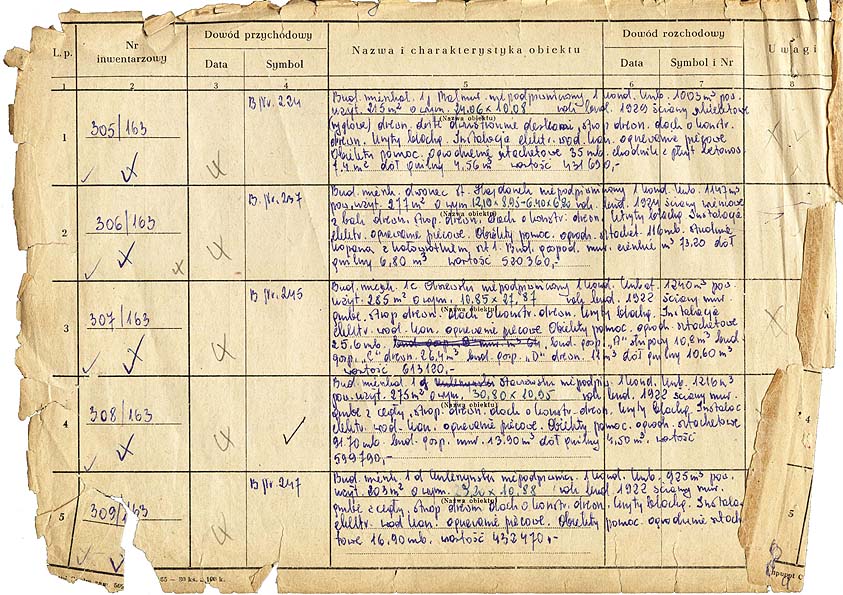 L.p. Nr inwentarzowy Dowód przychodowy Nazwa i charakterystyka obiektu Dowód rozchodowy Uwagi
Data Symbol Data Symbol i Nr
1 2 3 4 5 6 7 8
1 305/163 B Nr. 224
Bud. mieszkal. niepodpiwniczony 1 kond. kub. 1003 m³ pow.
użyt. 215 m² o wym. 24.06 × 10.08 rok bud. 1929 ściany
(Nazwa obiektu)
drewn. deskami, strop drewn. dach o konstr.
drewn. kryty blachą. Instalacja elektr. wod. kan. ogrzewanie piecowe
Obiekty pomoc. ogrodzenie sztachetowe 35 mb. chodniki z płyt betonow.
7.4 m² dół gnilny 4,56 m³ wartość 431690,-
2 306/163 B. Nr. 237
Bud. mieszk. dworzec st. niepodpiwniczony 1 kond. kub. 1147 m³
pow. użyt. 277 m² o wym. 12,10 × 8,95 - 6.40 × 6.80 rok bud. 1924 ściany
(Nazwa obiektu)
z bali drewn. strop drewn. dach o konstr. drewn. kryty blachą Instalacja
elektr. ogrzewanie piecowe. Obiekty pomoc. ogrodz. sztachet. 116 mb. studnia
kopana szt 1. Bud. gospod. mur. m³ 73.20 dół
gnilny 6,80 m³ wartość 520360,-
3 307/163 B Nr. 245
Bud. mieszk. 1c niepodpiwniczony 1 kond. kubat. 1240 m³ pow.
użyt. 285 m² o wym. 10,85 × 27,87 rok bud. 1922 ściany mur.
(Nazwa obiektu)
grube, strop drewn. dach o konstr. drewn. kryty blachą. Instalacja
elektr. wod. kan. ogrzewanie piecowe Obiekty pomoc. ogrodz. sztachetowe
25,6 mb. bud. gosp. "A" drupny 10,8 m³ bud.
gosp. "C" drewn. 26,4 m³ bud. gosp. "D" drewn. 12 m³ dół gnilny 10,60 m³
wartość 613120,-
4 308/163
Bud. mieszkal. 1 d niepodpiw. 1 kond. kub. 1216 m³
pow. użyt. 275 m² o wym. 30,80 × 20,95 rok bud. 1922 ściany mur.
(Nazwa obiektu)
grube z cegły, strop drewn. dach o konstr. drewn. kryty blachą. Instalac.
elektr. wod. kan. ogrzewanie piecowe. Obiekty pomoc. ogrodz. sztachetowe
91.70 mb. bud. gosp. mur. 13.90 m³ dół gnilny 4,50 m³. wartość
599790,-
5 309/163 B Nr. 247
Bud. mieszk. 1 d niepodpiwnicz. 1 kond. kub. 925 m³ pow.
użyt. 203 m² o wym. 23,20 × 10,88 rok bud. 1922 ściany mur.
(Nazwa obiektu)
grube z cegły, strop drewn. dach o konstr. drewn. kryty blachą. Instalac.
elektr. wod. kan. ogrzewanie piecowe. Obiekty pomoc. ogrodzenie sztach
towe 16,90 mb. wartość 432470,-